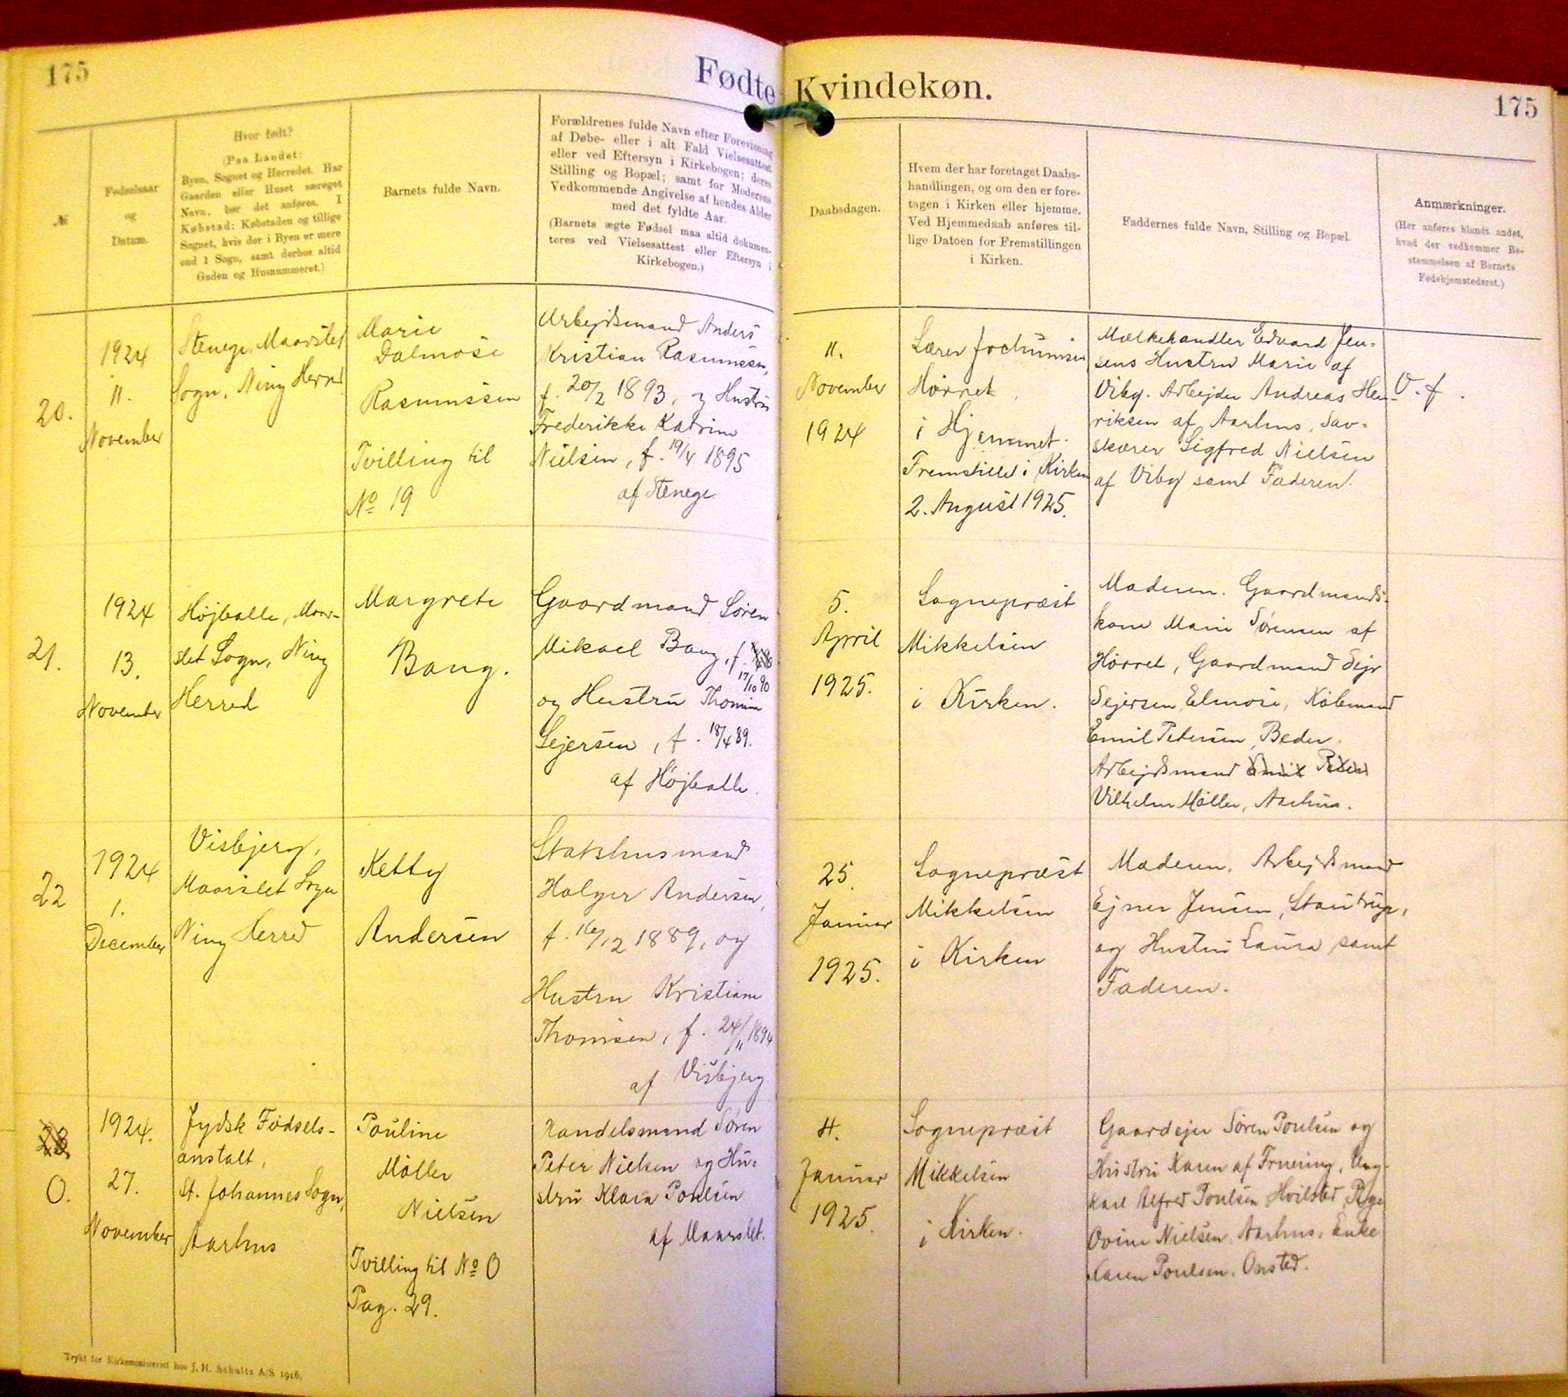 175
Fødte
Kvindekøn.
175
№
Fødselsaar
og
Datum.
Hvor født?
(Paa Landet:
Byen, Sognet og Herredet. Har
Gaarden eller Huset særeget
Navn, bør det anføres. I
Købstad: Købstaden og tillige
Sognet, hvis der i Byen er mere
end 1 Sogn, samt derhos altid
Gaden og Husnummeret.)
Barnets fulde Navn.
Forældrenes fulde Navn efter Forevisning
af Døbe- eller i alt Fald Vielsesattest
eller ved Eftersyn i Kirkebogen; deres
Stilling og Bopæl; samt for Moderens
Vedkommende Angivelse af hendes Alder
med det fyldte Aar.
(Barnets ægte Fødsel maa altid dokumen-
teres ved Vielsesattest eller Eftersyn i
Kirkebogen.)
Daabsdagen.
Hvem der har foretaget Daabs-
handlingen, og om den er fore-
tagen i Kirken eller hjemme.
Ved Hjemmedaab anføres til-
lige Datoen for Fremstillingen
i Kirken.
Faddernes fulde Navn, Stilling og Bopæl.
Anmærkninger.
(Her anføres blandt andet,
hvad der vedkommer Be-
stemmelsen af Barnets
Fødehjemstedsret.)
20.
1924
11.
November
Stenege, Maarslet
Sogn, Ning Herred
Marie
Dalmose
Rasmussen
Tvilling til
№ 19
Arbejdsmand Anders
Kristian Rasmussen,
f. 20/2 1893, og Hustru
Frederikke Katrine
Nielsen, f. 19/4 1895
af Stenege
11.
November
1924
Lærer Jochumsen
Hørret
i Hjemmet.
Fremstillet i Kirken
2. August 1925.
Mælkehandler Edvard Jen-
sens Hustru Marie af
Viby. Arbejder Andreas Hen-
riksen af Aarhus, Sav-
skærer Sigfred Nielsen
af Viby samt Faderen.
V. f.
21.
1924
13.
November
Højballe, Maar-
slet Sogn, Ning
Herred
Margrete
Bang.
Gaardmand Søren
Mikael Bang, f.
17/10 90
og Hustru Thomine
Sejersen, f. 18/4 89.
af Højballe.
5.
April
1925.
Sognepræst
Mikkelsen
i Kirken.
Moderen. Gaardmands-
kone Marie Sørensen af
Hørret, Gaardmand Sejr
Sejersen, Elmose, Købmand
Emil Petersen, Beder.
Arbejdsmand
Vilhelm Møller, Aarhus.
22
1924
1.
December
Visbjerg,
Maarslet Sogn
Ning Herred
Ketty
Andersen
Statshusmand
Holger Andersen,
f. 16/12 1889, og
Hustru Kristiane
Thomsen, f. 24/11 1894
af Visbjerg
25.
Januar
1925.
Sognepræst
Mikkelsen
i Kirken
Moderen. Arbejdsmand
Ejner Jensen, Stautrup,
og Hustru Laura samt
Faderen.
O.
1924.
27.
November
Jydsk Fødsels-
anstalt,
St. Johannes Sogn,
Aarhus
Pouline
Møller
Nielsen
Tvilling til № O
Pag. 29.
Handelsmand Søren
Peter Nielsen og Hu-
stru Klara Poulsen
af Maarslet.
4.
Januar
1925.
Sognepræst
Mikkelsen
i Kirken.
Gaardejer Søren Poulsen og
Hustru Karen af Fruering, Ung-
karl Alfred Poulsen Hvilsted, Pige
Ovine Nielsen, Aarhus, Enke
Karen Poulsen. Onsted.
Trykt for Kirkeministeriet hos J. H. Schultz A/S 1916.